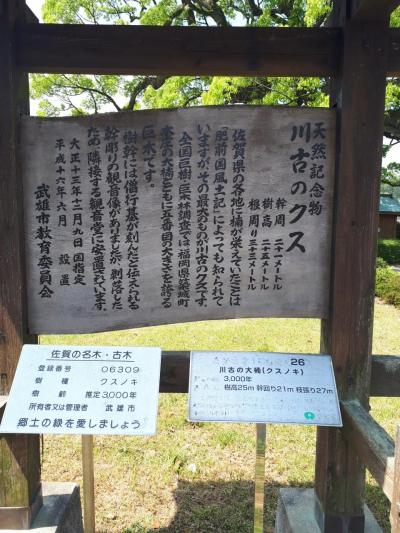 天然記念物
川古のクス
幹周 二十一メートル
樹高 二十五メートル
根周り三十三メートル
佐賀県の各地に楠が栄えていたことは
「肥前国風土記」によっても知られて
いますが、その最大のものが川古のクスです。
全国巨樹・巨木林調査では福岡県築城町
本庄の大楠とともに五番目の大きさを誇る
巨木です。
樹幹には僧行基が刻んだと伝えられる
幹彫りの観音像がありましたが、剥落した
ため、隣接する観音堂に安置されています。
大正十三年十二月九日国指定
平成十六年六月 設置
武雄市教育委員会
佐賀の名木・古木
登録番号 06309
樹種 クスノキ
樹齢 推定3,000年
所有者又は管理者 武雄市
郷土の緑を愛しましょう
26
川古の大楠(クスノキ)
3,000年
樹高25m 幹回り21m 枝張り27m